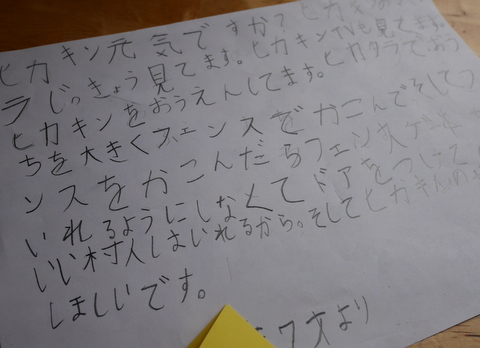 ヒカキン元気ですか?ヒカキンの
ラじっきょう見てます。ヒカキンTVも見てます。
ヒカキンをおうえんしてます。ヒカクラでおう
ちを大きくフェンスでかこんでそしてフ
ンスをかこんだらフェンスゲート
いれるようにしなくてドアをつけて
いい村人しはいれるから。そしてヒカキんの
ほしいです。
より